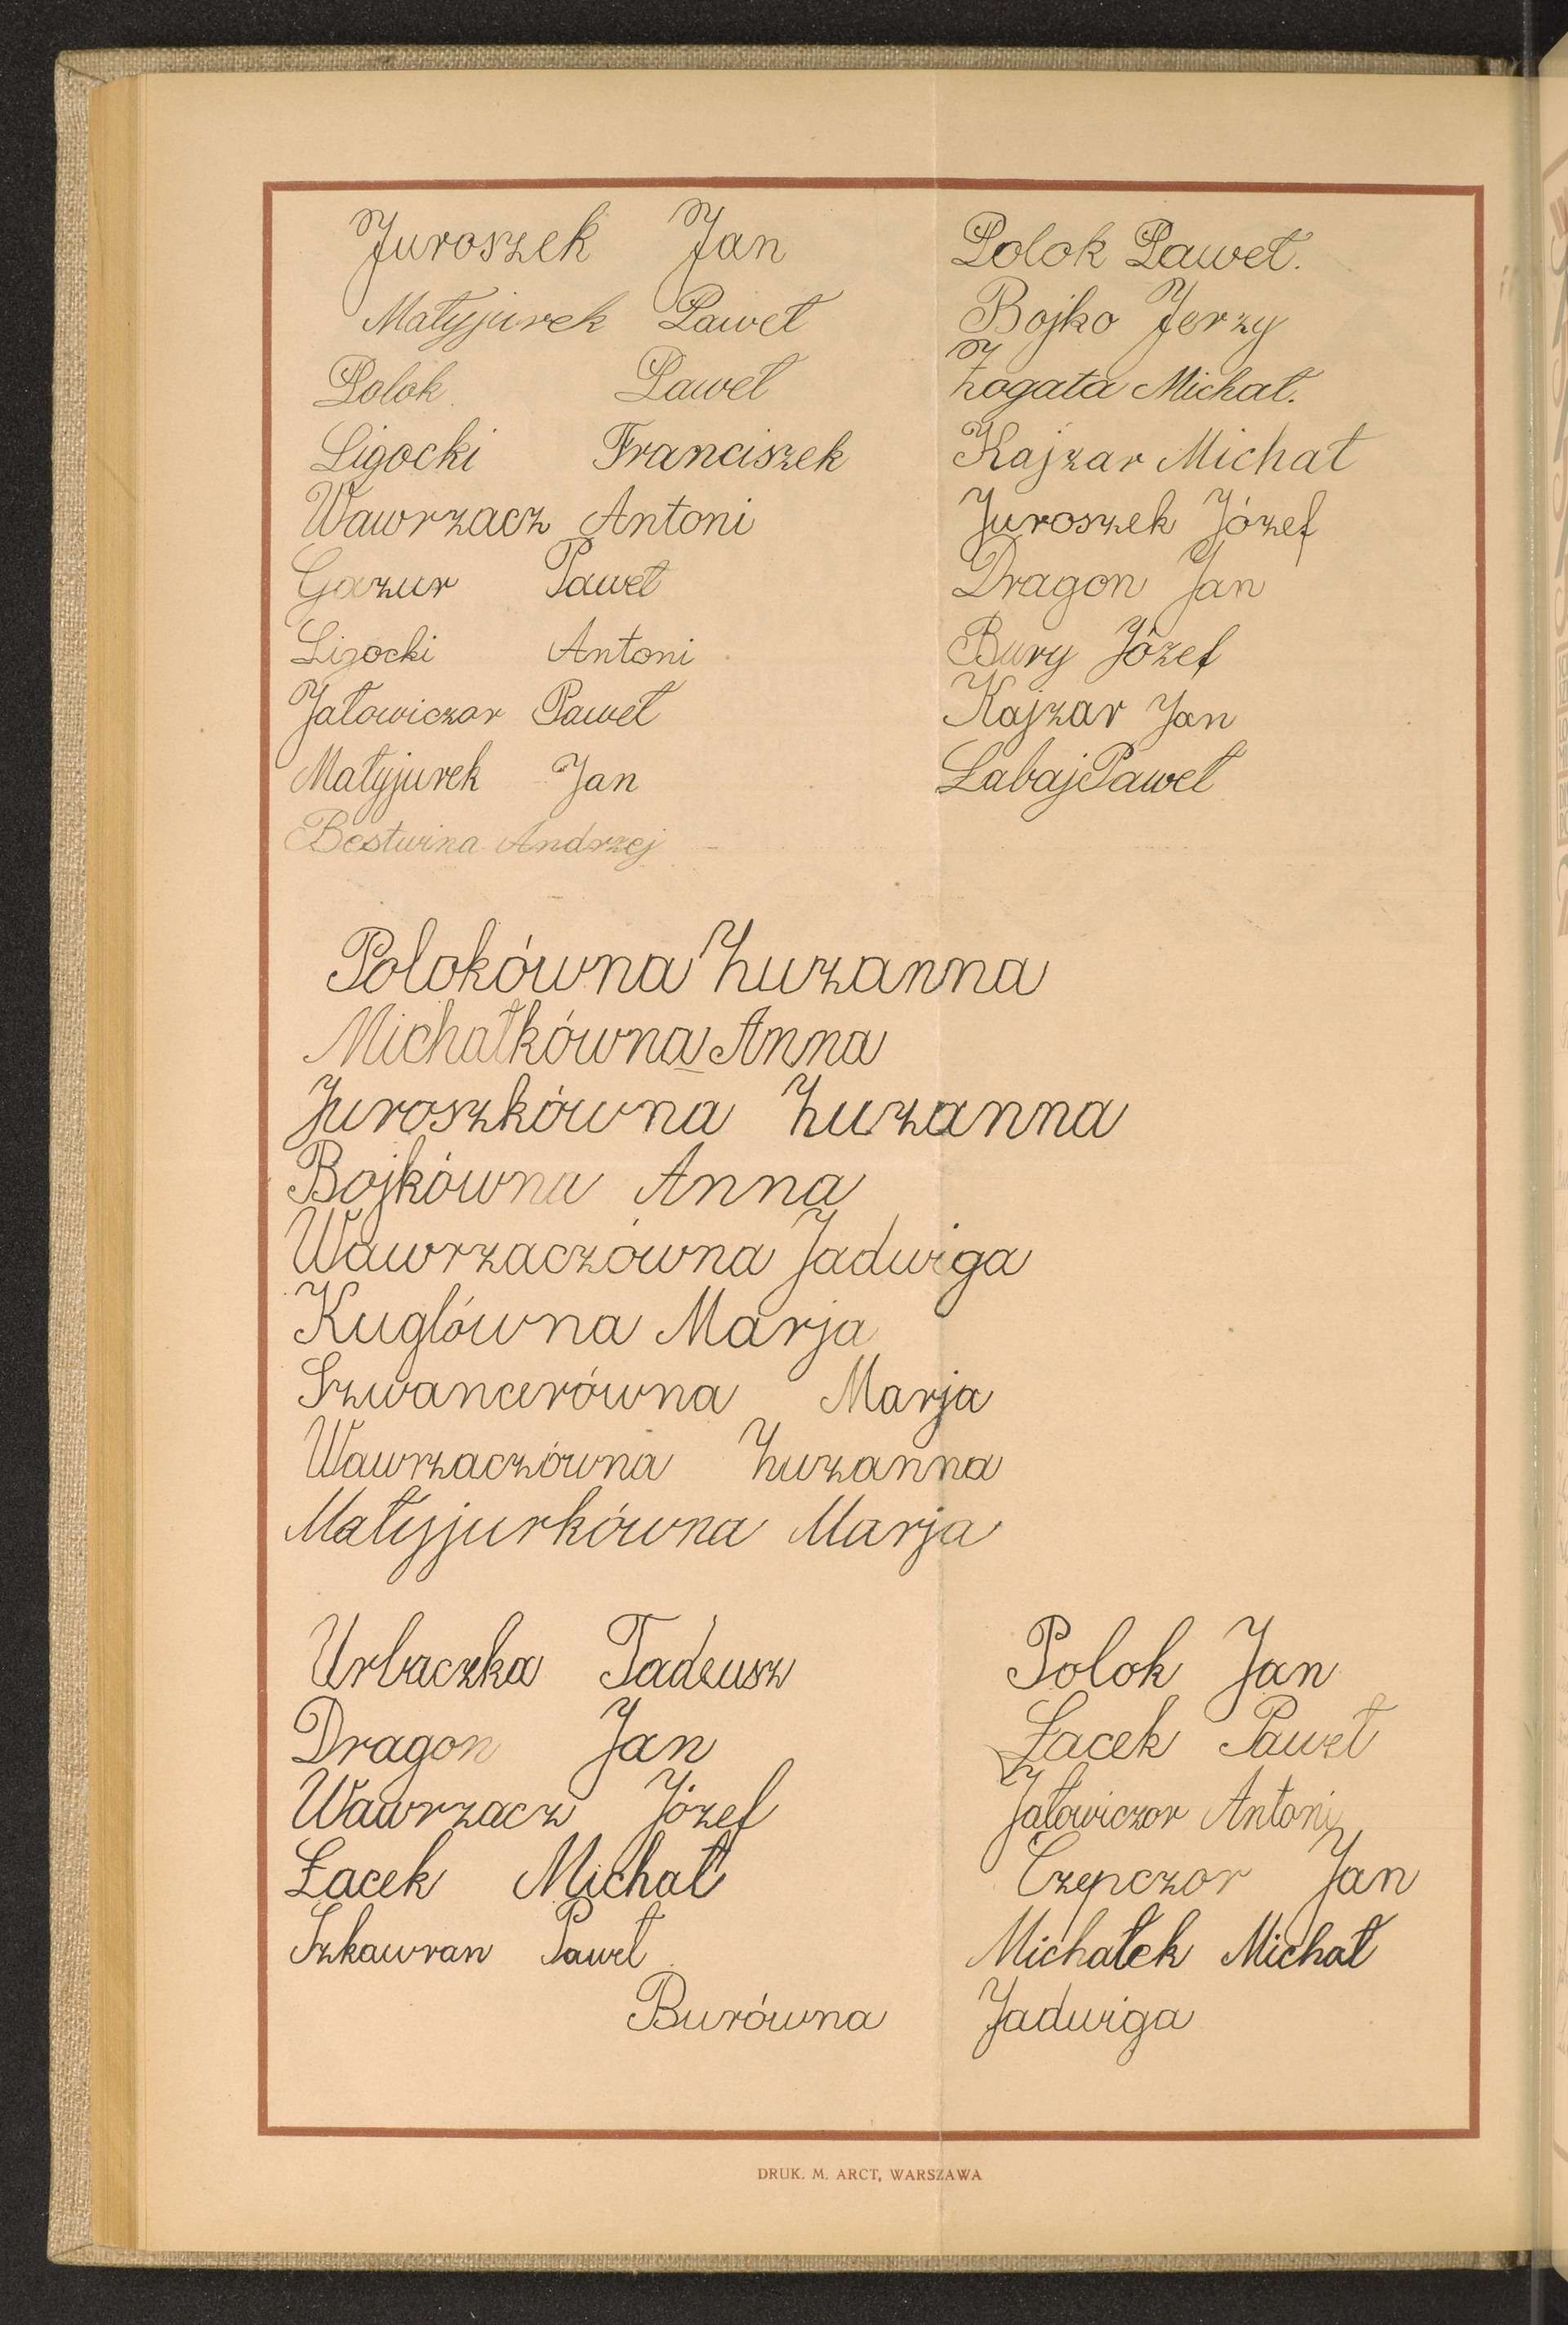 Juroszek Jan
Matyjurek Paweł
Polok Paweł
Ligocki Franciszek
Wawrzacz Antoni
Gazur Paweł
Ligocki Antoni
Jałowiczor Paweł
Matyjurek Jan
Bestwina Andrzej
Polok Paweł.
Bojko Jerzy
Zogata Michał.
Kajzar Michał
Juroszek Józef
Dragon Jan
Bury Józef
Kajzar Jan
Labaj Paweł
Polokówna Zuzanna
Michałkówna Anna
Juroszkówna Zuzanna
Bojkówna Anna
Wawrzaczówna Jadwiga
Kuglówna Marja
Szwancerówna Marja
Wawrzaczówna Zuzanna
Matyjurkówna Marja
Urbaczka Tadeusz
Dragon Jan
Wawrzacz Józef
Łacek Michał
Szkawran Paweł
Polok Jan
Łacek Paweł
Jałowiczor Antoni
Czepczor Jan
Michałek Michał
Burówna Jadwiga
DRUK. M. ARCT, WARSZAWA